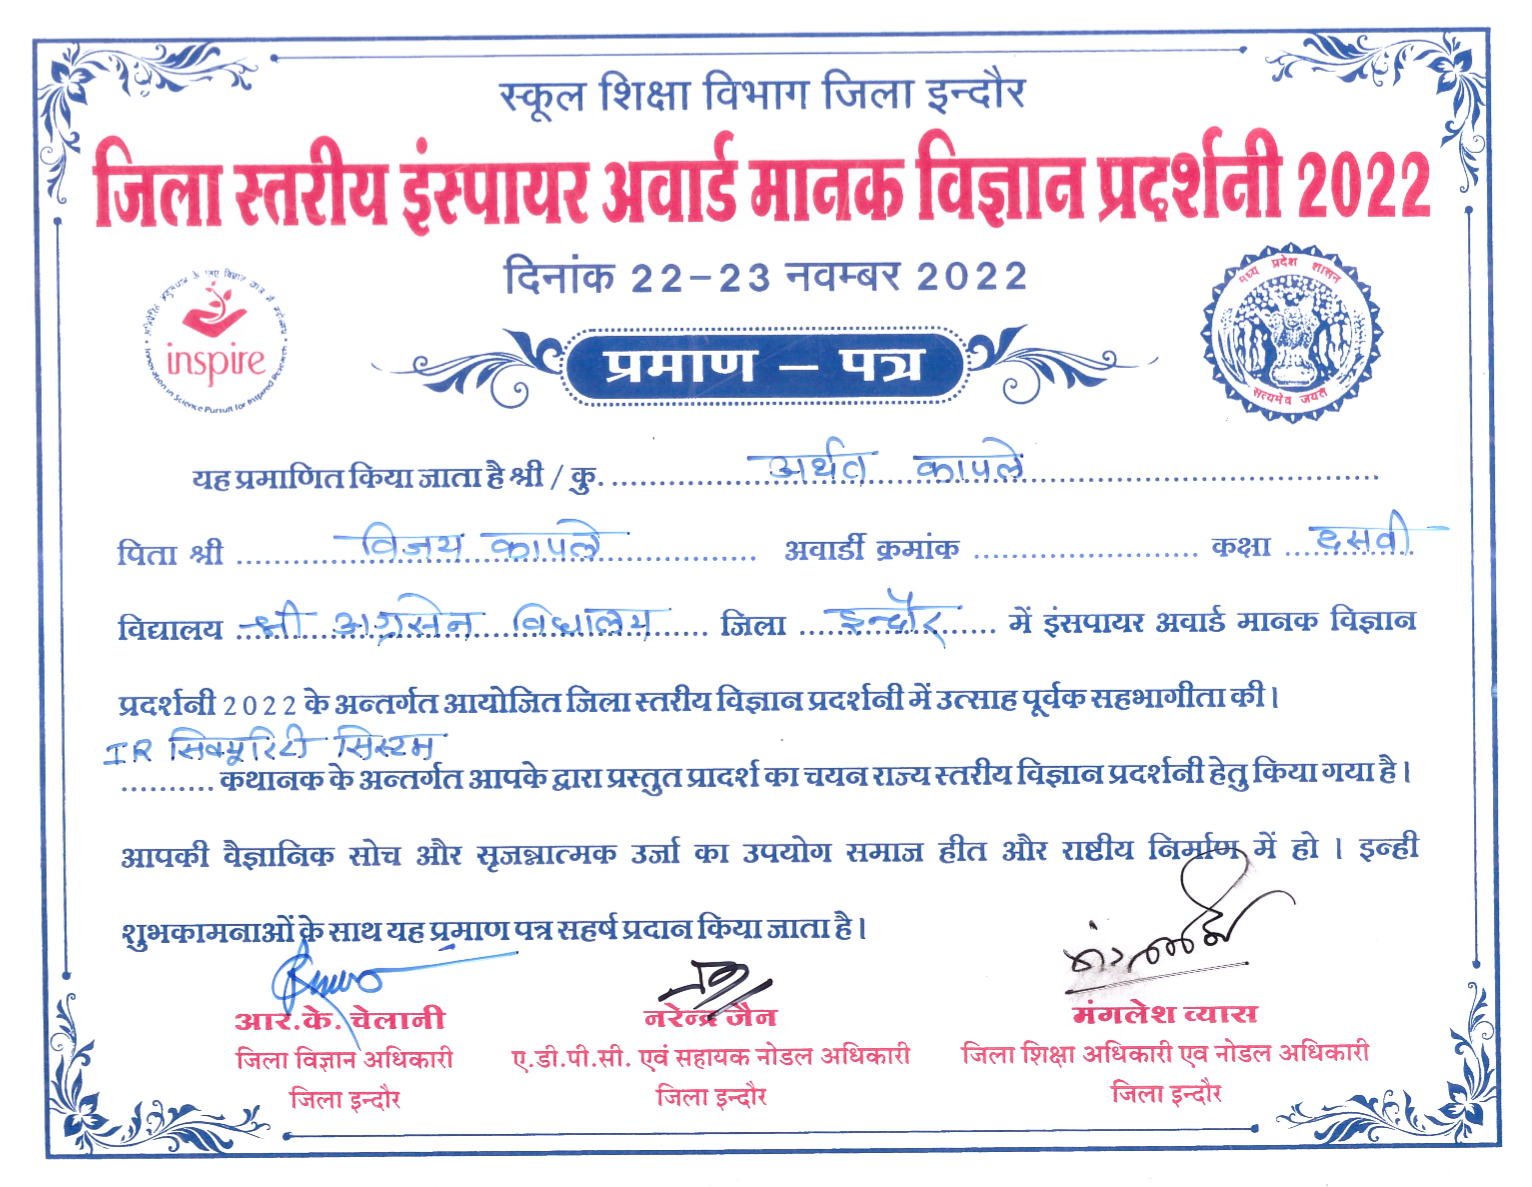 स्कूल शिक्षा विभाग जिला इन्दौर
जिला स्तरीय इंस्पायर अवार्ड मानक विज्ञान प्रदर्शनी 2022
दिनांक 22-23 नवम्बर 2022
inspire
Innovation in Science Pursuit for Inspired Research
मध्य प्रदेश शासन
सत्यमेव जयते
प्रमाण – पत्र
यह प्रमाणित किया जाता है श्री / कु. अर्थव कापले
पिता श्री विजय कापले अवार्डी क्रमांक कक्षा दसवी
विद्यालय श्री अग्रसेन विद्यालय जिला इन्दौर में इंसपायर अवार्ड मानक विज्ञान
प्रदर्शनी 2022 के अन्तर्गत आयोजित जिला स्तरीय विज्ञान प्रदर्शनी में उत्साह पूर्वक सहभागीता की।
IR सिक्यूरिटी सिस्टम
कथानक के अन्तर्गत आपके द्वारा प्रस्तुत प्रादर्श का चयन राज्य स्तरीय विज्ञान प्रदर्शनी हेतु किया गया है।
आपकी वैज्ञानिक सोच और सृजन्नात्मक उर्जा का उपयोग समाज हीत और राष्टीय निर्माण में हो । इन्ही
शुभकामनाओं के साथ यह प्रमाण पत्र सहर्ष प्रदान किया जाता है।
आर.के. चेलानी
जिला विज्ञान अधिकारी
जिला इन्दौर
नरेन्द्र जैन
ए.डी.पी.सी. एवं सहायक नोडल अधिकारी
जिला इन्दौर
मंगलेश व्यास
जिला शिक्षा अधिकारी एव नोडल अधिकारी
जिला इन्दौर